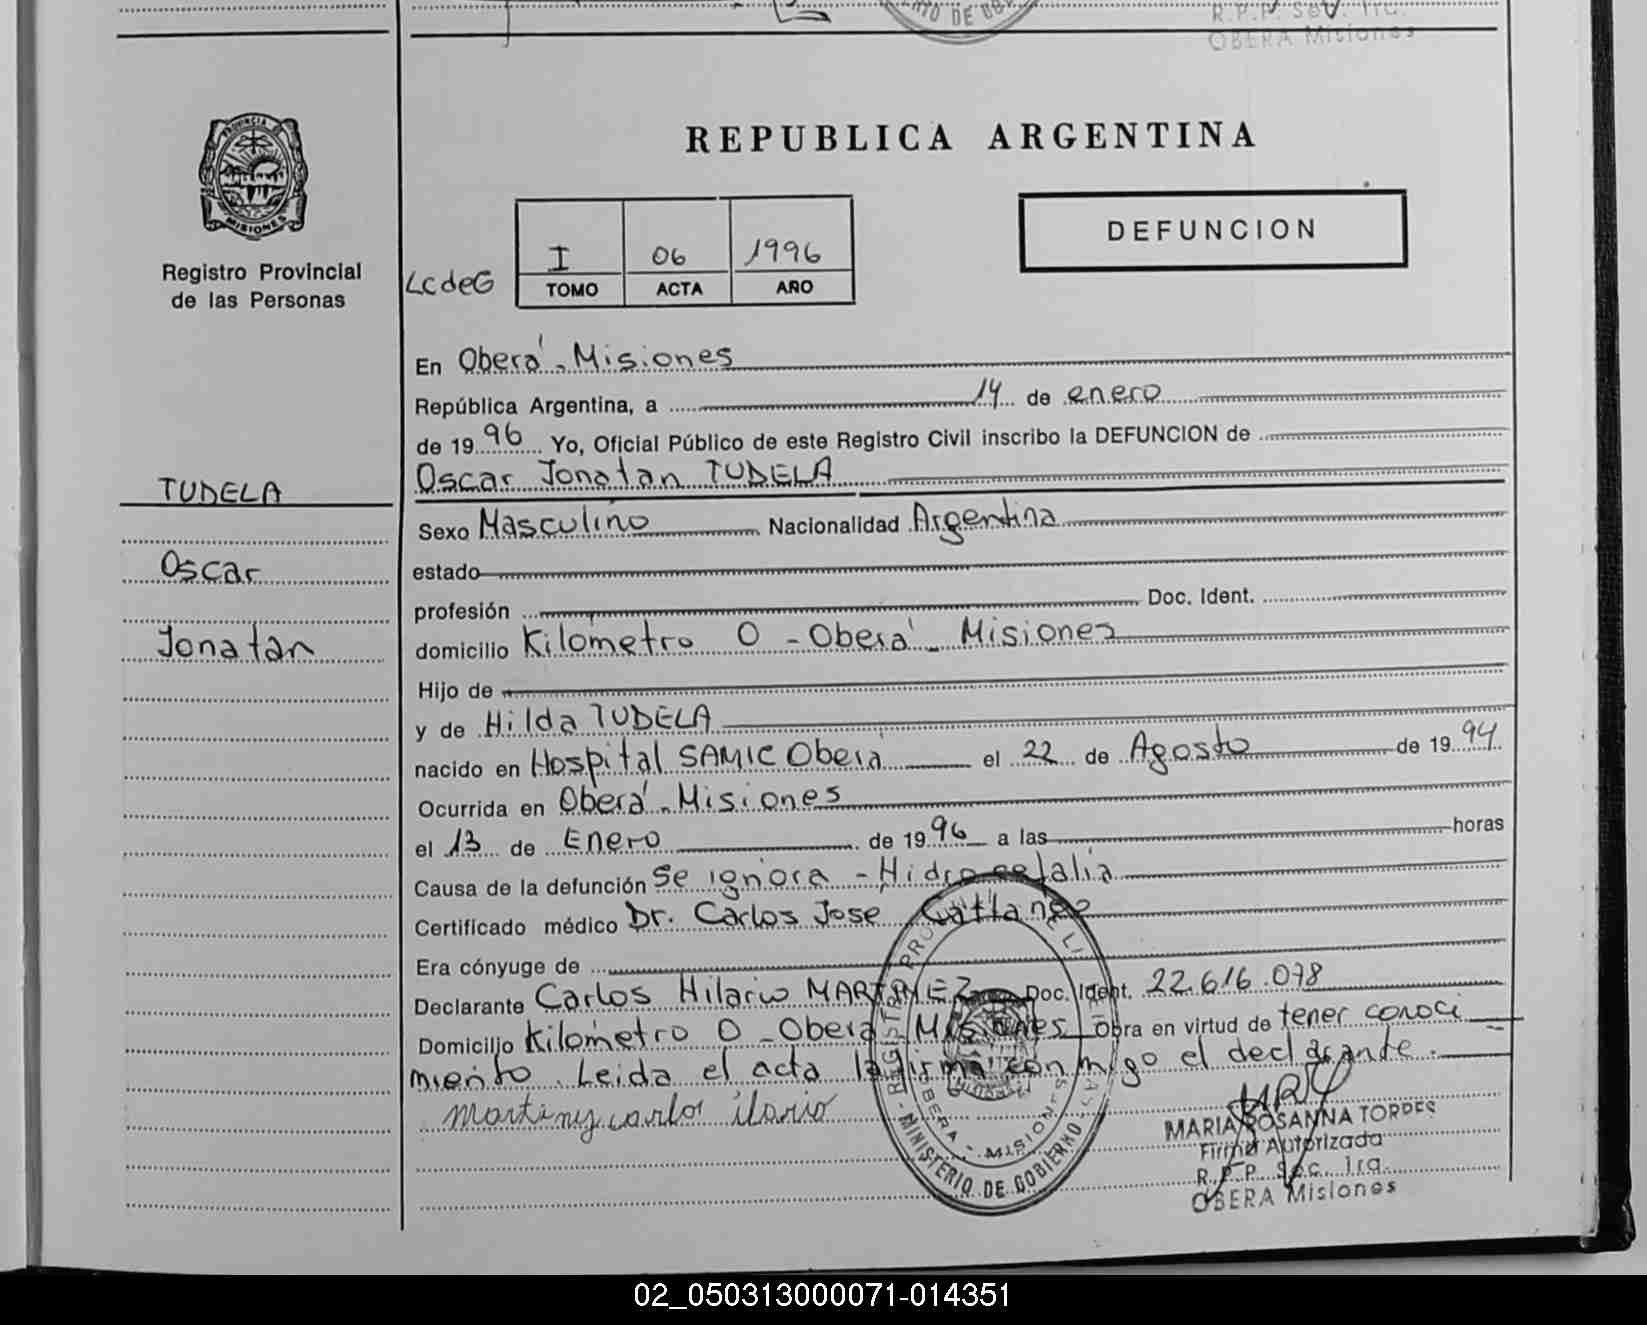 R.P.P. Sec. 1ra.
OBERA Misiones
PROVINCIA DE
MISIONES
Registro Provincial
de las Personas
REPUBLICA ARGENTINA
DEFUNCION
LCdeG
I 06 1996
TOMO ACTA AÑO
En Oberá - Misiones
República Argentina, a 14 de enero
de 1996 Yo, Oficial Público de este Registro Civil inscribo la DEFUNCION de
TUDELA
Oscar Jonatan TUDELA
Sexo Masculino Nacionalidad Argentina
Oscar
estado
profesión Doc. Ident.
Jonatan
domicilio Kilometro 0 - Oberá - Misiones
Hijo de
y de Hilda TUDELA
nacido en Hospital SAMIC Oberá el 22 de Agosto de 1994
Ocurrida en Oberá - Misiones
el 13 de Enero de 1996 a las horas
Causa de la defunción Se ignora - Hidrocefalia
Certificado médico Dr. Carlos Jose Cattaneo
Era cónyuge de
Declarante Carlos Hilario MARTINEZ Doc. Ident. 22.616.078
Domicilio Kilometro 0 - Oberá Misiones obra en virtud de tener conoci
miento. Leida el acta la firma conmigo el declarante.
Martinez carlos ilario
MARIA ROSANNA TORRES
Firma Autorizada
R.P.P. Sec. 1ra.
OBERA Misiones
OBERA - MISIONES
MINISTERIO DE GOBIERNO
02_050313000071-014351